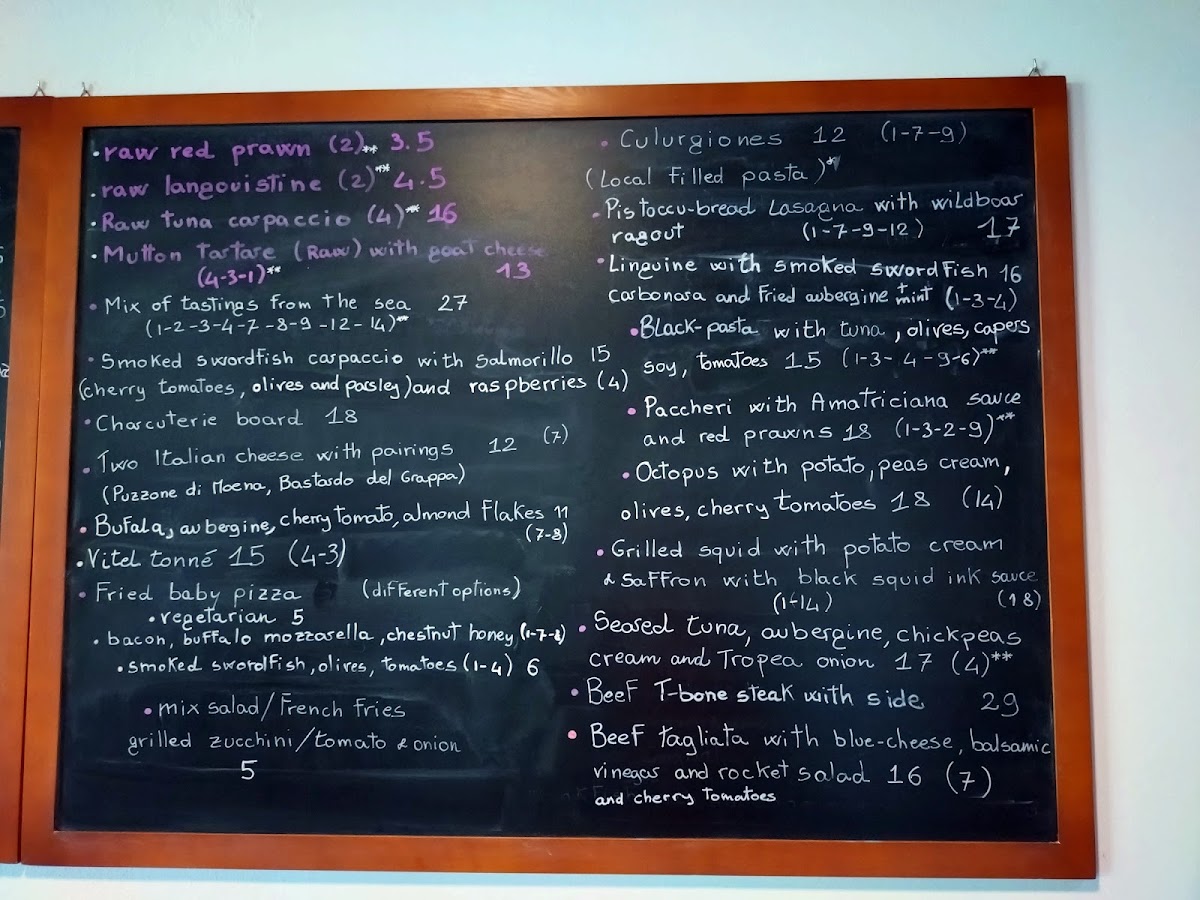 • raw red prawn (2)** 3.5
• raw langouistine (2)** 4.5
• Raw tuna carpaccio (4)** 16
• Mutton Tartare (Raw) with goat cheese
(4-3-1)** 13
• Mix of tastings from the sea 27
(1-2-3-4-7-8-9-12-14)**
• Smoked swordfish carpaccio with salmorillo 15
(cherry tomatoes, olives and parsley) and raspberries (4)
• Charcuterie board 18
• Two Italian cheese with pairings 12 (7)
(Puzzone di Moena, Bastardo del Grappa)
• Bufala, aubergine, cherry tomato, almond flakes 11
(7-8)
• Vitel tonné 15 (4-3)
• Fried baby pizza (different options)
• vegetarian 5
• bacon, buffalo mozzarella, chestnut honey (1-7-8)
• smoked swordfish, olives, tomatoes (1-4) 6
• mix salad/French fries
grilled zucchini/tomato & onion
5
• Culurgiones 12 (1-7-9)
(Local filled pasta)*
• Pistoccu-bread Lasagna with wildboar
ragout (1-7-9-12) 17
• Linguine with smoked swordfish 16
carbonara and fried aubergine + mint (1-3-4)
• Black-pasta with tuna, olives, capers
soy, tomatoes 15 (1-3-4-9-6)**
• Paccheri with Amatriciana sauce
and red prawns 18 (1-3-2-9)**
• Octopus with potato, peas cream,
olives, cherry tomatoes 18 (14)
• Grilled squid with potato cream
& saffron with black squid ink sauce
(1-14) (18)
• Seased tuna, aubergine, chickpeas
cream and Tropea onion 17 (4)**
• Beef T-bone steak with side 29
• Beef tagliata with blue-cheese, balsamic
vinegar and rocket salad 16 (7)
and cherry tomatoes